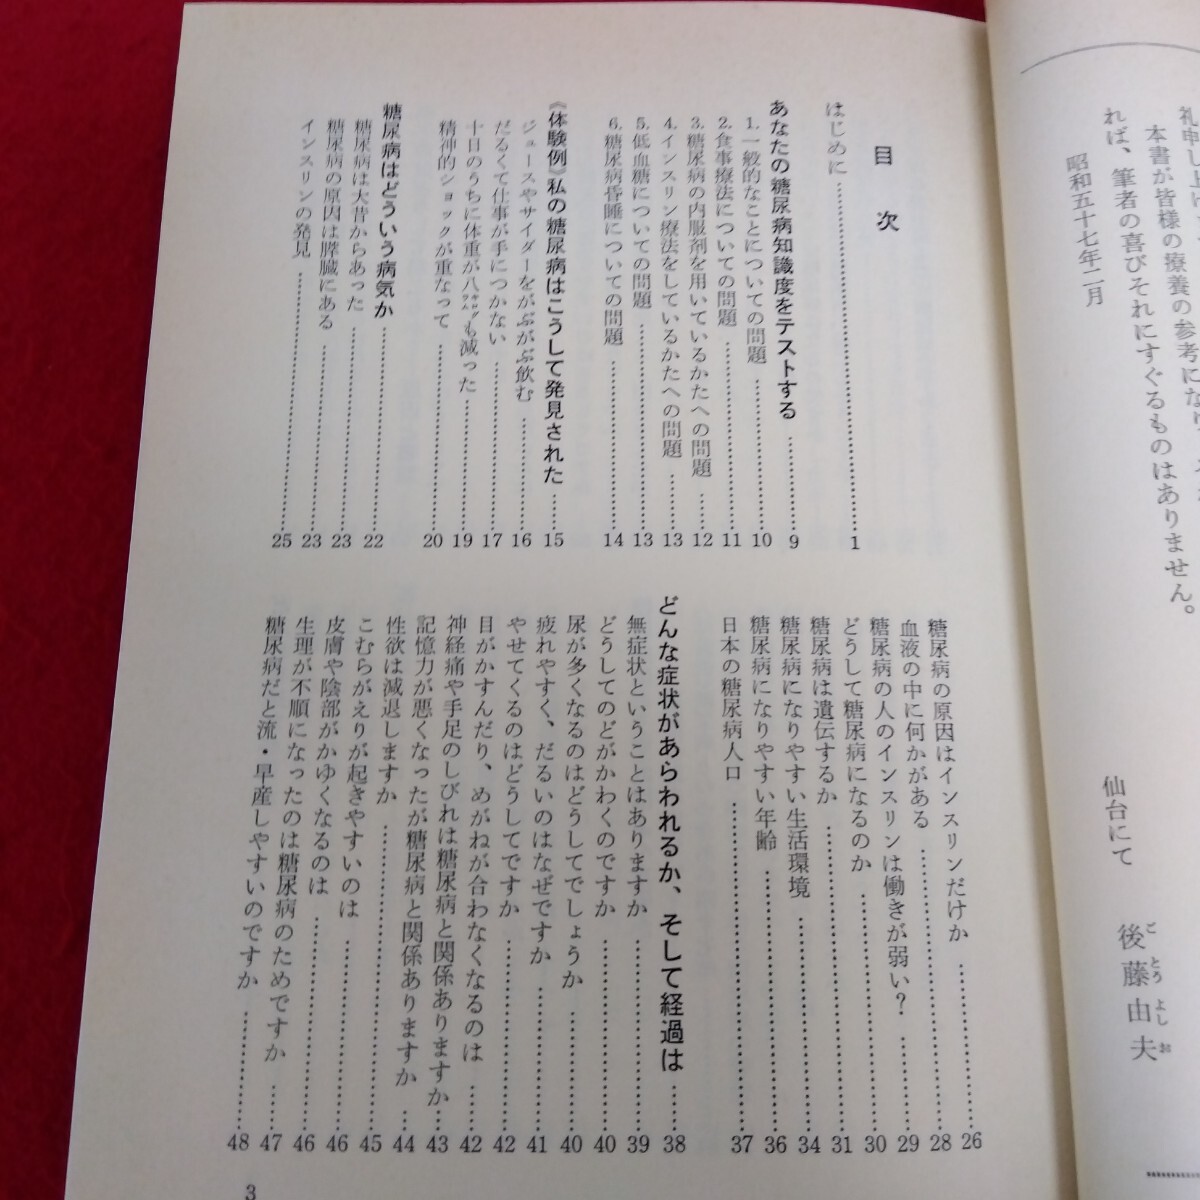 礼申し上げ
本書が皆様の療養の参考になり
れば、筆者の喜びそれにすぐるものはありません。
昭和五十七年二月
仙台にて　後藤由夫
ご とう よし お
目次
はじめに……1
あなたの糖尿病知識度をテストする……9
1.一般的なことについての問題……10
2.食事療法についての問題……11
3.糖尿病の内服剤を用いているかたへの問題……12
4.インスリン療法をしているかたへの問題……13
5.低血糖についての問題……13
6.糖尿病昏睡についての問題……14
《体験例》私の糖尿病はこうして発見された……15
ジュースやサイダーをがぶがぶ飲む……16
だるくて仕事が手につかない……17
十日のうちに体重が八キログラムも減った……19
精神的ショックが重なって……20
糖尿病はどういう病気か……22
糖尿病は大昔からあった……23
糖尿病の原因は膵臓にある……23
インスリンの発見……25
糖尿病の原因はインスリンだけか……26
血液の中に何かがある……28
糖尿病の人のインスリンは働きが弱い？……29
どうして糖尿病になるのか……30
糖尿病は遺伝するか……31
糖尿病になりやすい生活環境……34
糖尿病になりやすい年齢……36
日本の糖尿病人口……37
どんな症状があらわれるか、そして経過は……38
無症状ということはありますか……39
どうしてのどがかわくのですか……40
尿が多くなるのはどうしてでしょうか……40
疲れやすく、だるいのはなぜですか……41
やせてくるのはどうしてですか……42
目がかすんだり、めがねが合わなくなるのは……42
神経痛や手足のしびれは糖尿病と関係ありますか……43
記憶力が悪くなったが糖尿病と関係ありますか……44
性欲は減退しますか……45
こむらがえりが起きやすいのは……46
皮膚や陰部がかゆくなるのは……46
生理が不順になったのは糖尿病のためですか……47
糖尿病だと流・早産しやすいのですか……48
3